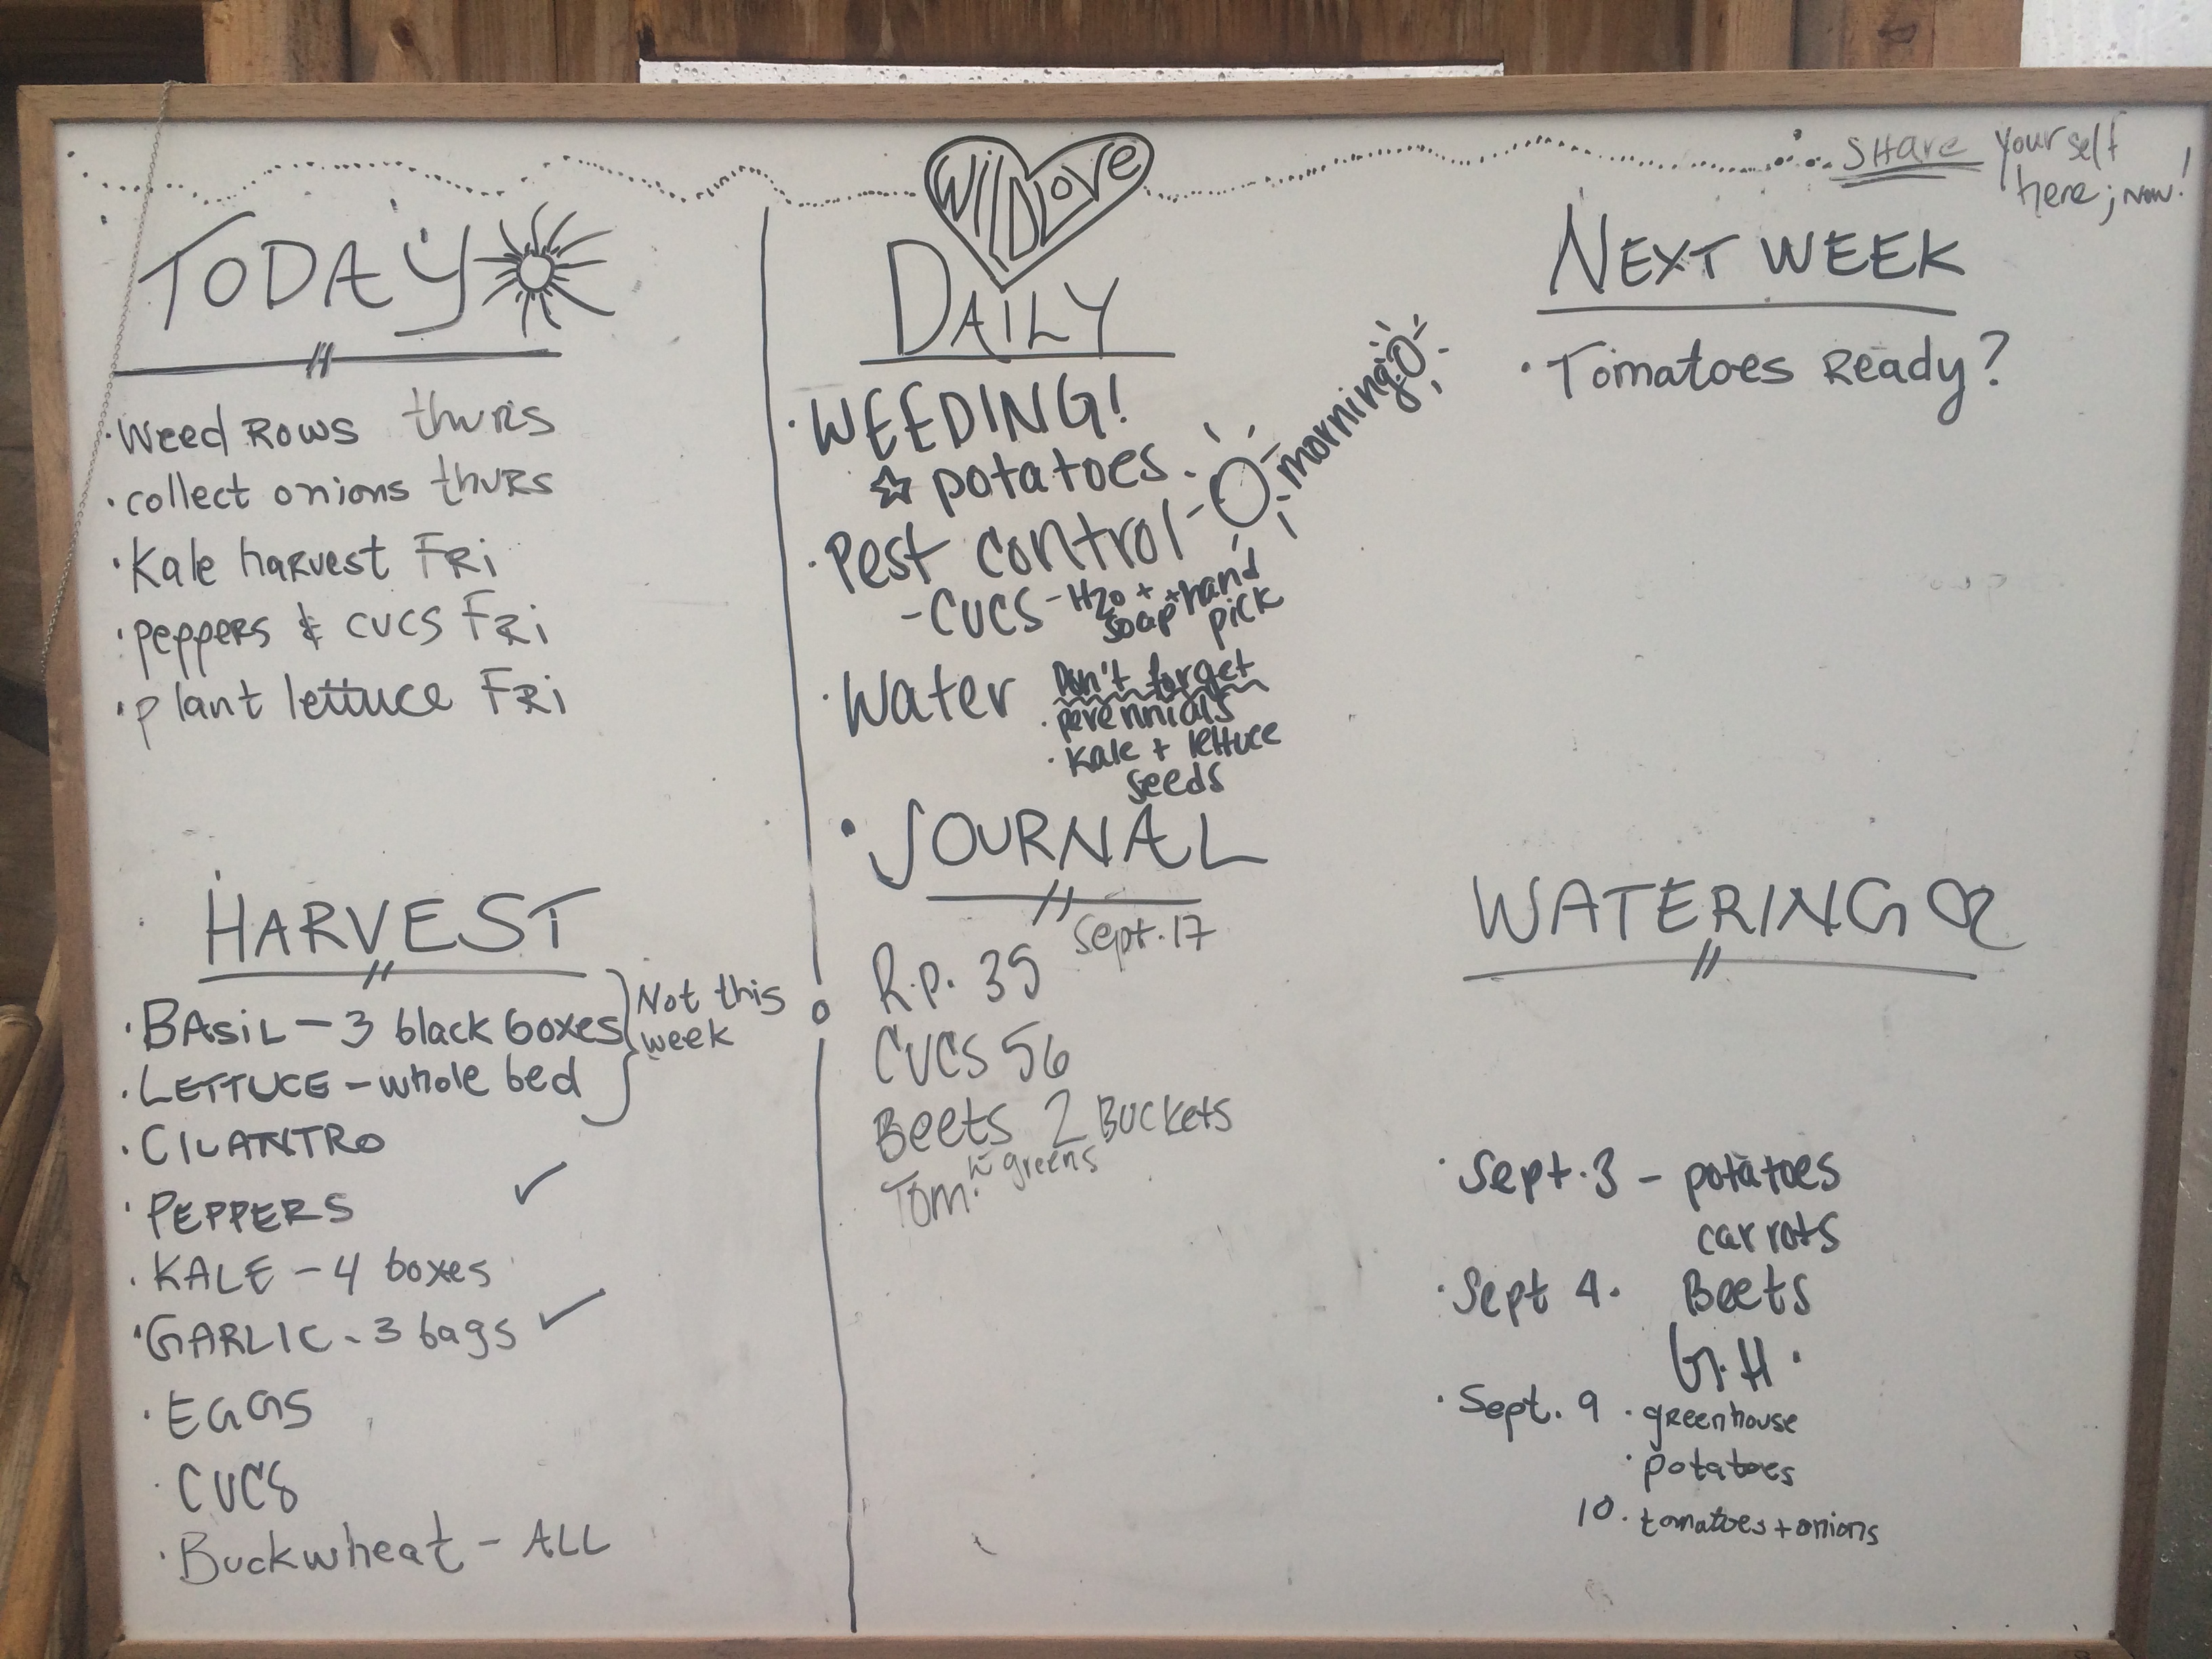 SHARE yourself
here; now!
WildLove
TODAY
• Weed Rows thurs
• collect onions thurs
• Kale harvest FRi
• peppers & cucs FRi
• plant lettuce FRi
HARVEST
• BASiL - 3 black boxes
• LETTUCE - whole bed
Not this
week
• CILANTRO
• PEPPERS ✓
• KALE - 4 boxes
• GARLIC - 3 bags ✓
• EGGS
• CUCS
• Buckwheat - ALL
DAILY
• WEEDING!
☆ potatoes
• Pest control - morning
- CUCS - H2O +
soap + hand
pick
• Water Don't forget
• perennials
• Kale + lettuce
seeds
• JOURNAL
Sept. 17
R.p. 35
CUCS 56
Beets 2 Buckets
w greens
Tom.
NEXT WEEK
• Tomatoes Ready?
WATERING
• Sept. 3 - potatoes
carrots
• Sept 4. Beets
G.H.
• Sept. 9 • greenhouse
• potatoes
10. tomatoes + onions